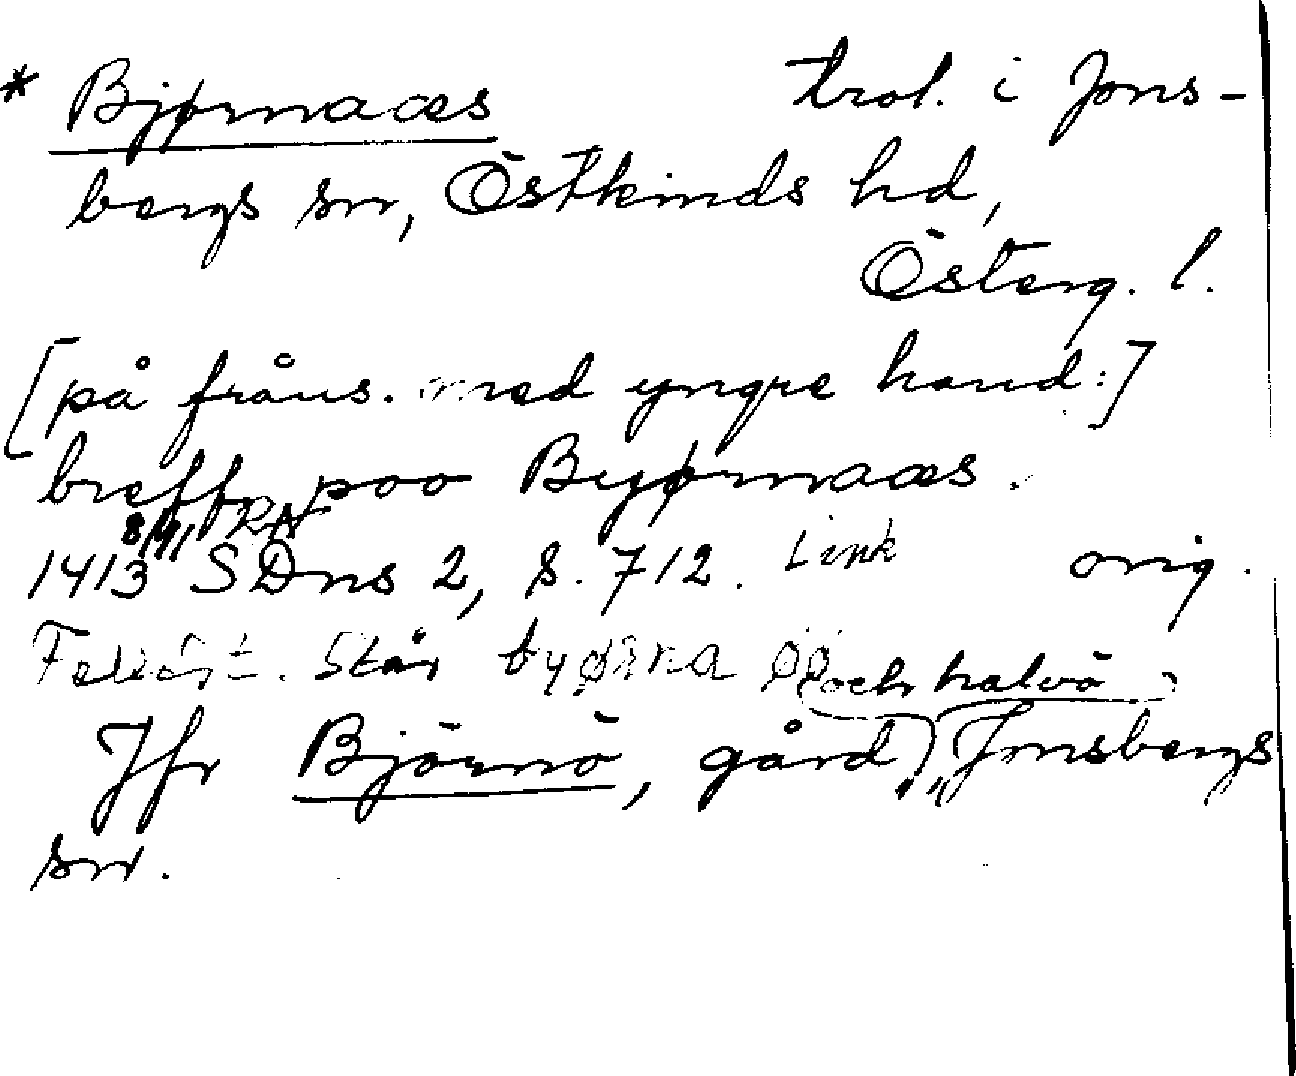 * Bjørnaæs trol. i Jons-
bergs sn, Östkinds hd,
Österg. l.
[på fråns. med yngre hand:]
breff poo Byørnaæs.
8/11 RA
1413 SDns 2, s. 712. Link orig.
Felläst. Står byørna øø
och halvö
Jfr Björnö, gård, Jonsbergs
sn.